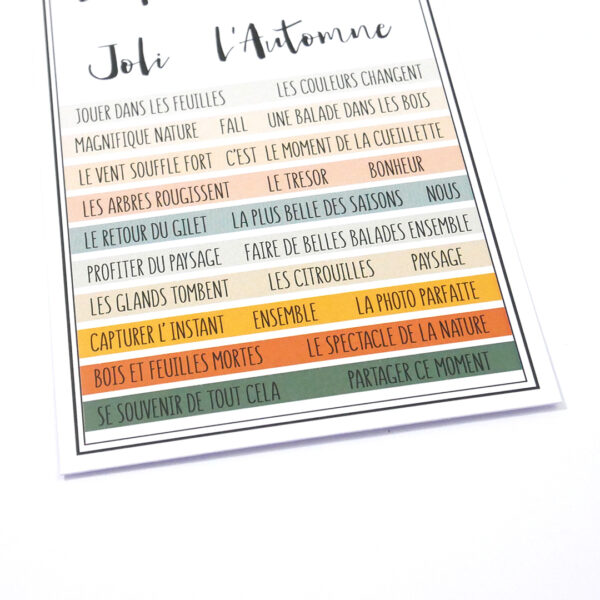 Joli L'Automne
JOUER DANS LES FEUILLES LES COULEURS CHANGENT
MAGNIFIQUE NATURE FALL UNE BALADE DANS LES BOIS
LE VENT SOUFFLE FORT C'EST LE MOMENT DE LA CUEILLETTE
LES ARBRES ROUGISSENT LE TRESOR BONHEUR
LE RETOUR DU GILET LA PLUS BELLE DES SAISONS NOUS
PROFITER DU PAYSAGE FAIRE DE BELLES BALADES ENSEMBLE
LES GLANDS TOMBENT LES CITROUILLES PAYSAGE
CAPTURER L'INSTANT ENSEMBLE LA PHOTO PARFAITE
BOIS ET FEUILLES MORTES LE SPECTACLE DE LA NATURE
SE SOUVENIR DE TOUT CELA PARTAGER CE MOMENT